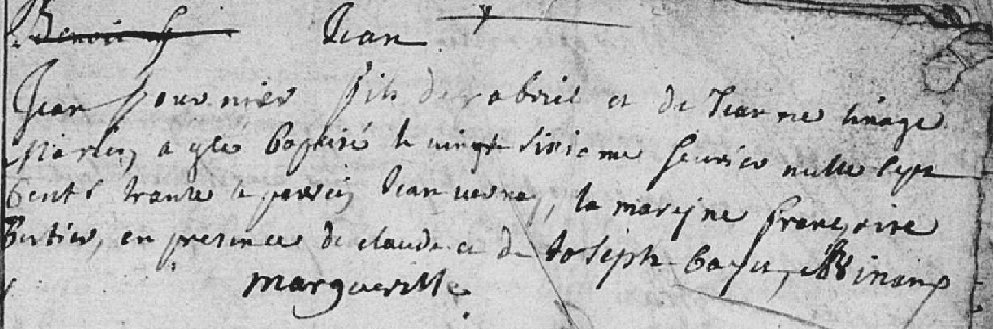 Benoit Jean
Jean fournier fils de gabriel et de Jeanne
Martin a yté baptisé le vingt sixiome feuvrier mille sept
cents trante le parrin Jean vernay, la mareyne françoise
en presence de claude et de Joseph
margueritte